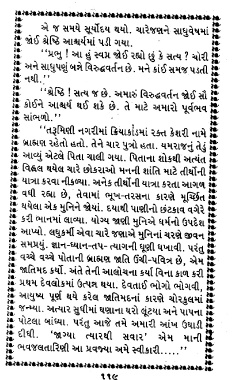 એ જ સમયે સૂર્યોદય થયો. ચારેજણને સાધુવેષમાં
જોઈ શ્રેષ્ઠિ આશ્ચર્યમાં પડી ગયા.
“પ્રભુ ! આ હું સ્વપ્ન જોઈ રહ્યો છું કે સત્ય ? ચોરી
અને સાધુપણું બન્ને વિરુદ્ધવર્તન છે. મને કાંઈ સમજ પડતી
નથી.”
“શ્રેષ્ઠિ ! સત્ય જ છે. અમારું વિરુદ્ધવર્તન જોઈ સૌ
કોઈને આશ્ચર્ય થઈ શકે છે. તે માટે અમારો પૂર્વભવ
સાંભળો.”
“તરૂમિણી નગરીમાં ક્રિયાકાંડમાં રક્ત કેશરી નામે
બ્રાહ્મણ રહેતો હતો. તેને ચાર પુત્રો હતા. યમરાજનું તેડું
આવ્યું એટલે પિતા ચાલી ગયા. પિતાના શોકથી અત્યંત
વિહ્વલ થયેલ ચારે છોકરાઓ મનની શાંતિ માટે તીર્થોની
યાત્રા કરવા નીકળ્યા. અનેક તીર્થોની યાત્રા કરતા આગળ
વધી રહ્યા છે, તેવામાં ભૂખ-તરસના કારણે મૂર્ચ્છિત
થયેલા એક મુનિને જોયાં. દયાથી પાણીનો છંટકાવ વગેરે
કરી ભાનમાં લાવ્યા. યોગ્ય જાણી મુનિએ ધર્મનો ઉપદેશ
આપ્યો. લઘુકર્મી એવા ચારે જણાએ મુનિનાં ચરણે જીવન
સમપ્યું. જ્ઞાન-ધ્યાન-તપ-ત્યાગની ધૂણી ધખાવી. પરંતુ
વચ્ચે વચ્ચે પોતાની બ્રાહ્મણ જાતિ ઉંચી-પવિત્ર છે, એમ
જાતિમદ કર્યો. અંતે તેની આલોચના કર્યા વિના કાળ કરી
પ્રથમ દેવલોકમાં ઉત્પન્ન થયા. દેવતાઈ ભોગો ભોગવી,
આયુષ્ય પૂર્ણ થયે કરેલ જાતિમદનાં કારણે ચોરકુલમાં
જન્મ્યા. અત્યાર સુધીમાં ઘણાના ઘરો લૂંટ્યા અને પાપના
પોટલા બાંધ્યા. પરંતુ આજે તમે અમારી આંખ ઉઘાડી
દીધી. ‘જાગ્યા ત્યારથી સવાર’ એમ માની
ભવજલતારિણી આ પ્રવ્રજ્યા અમે સ્વીકારી.....”
૧૧૯